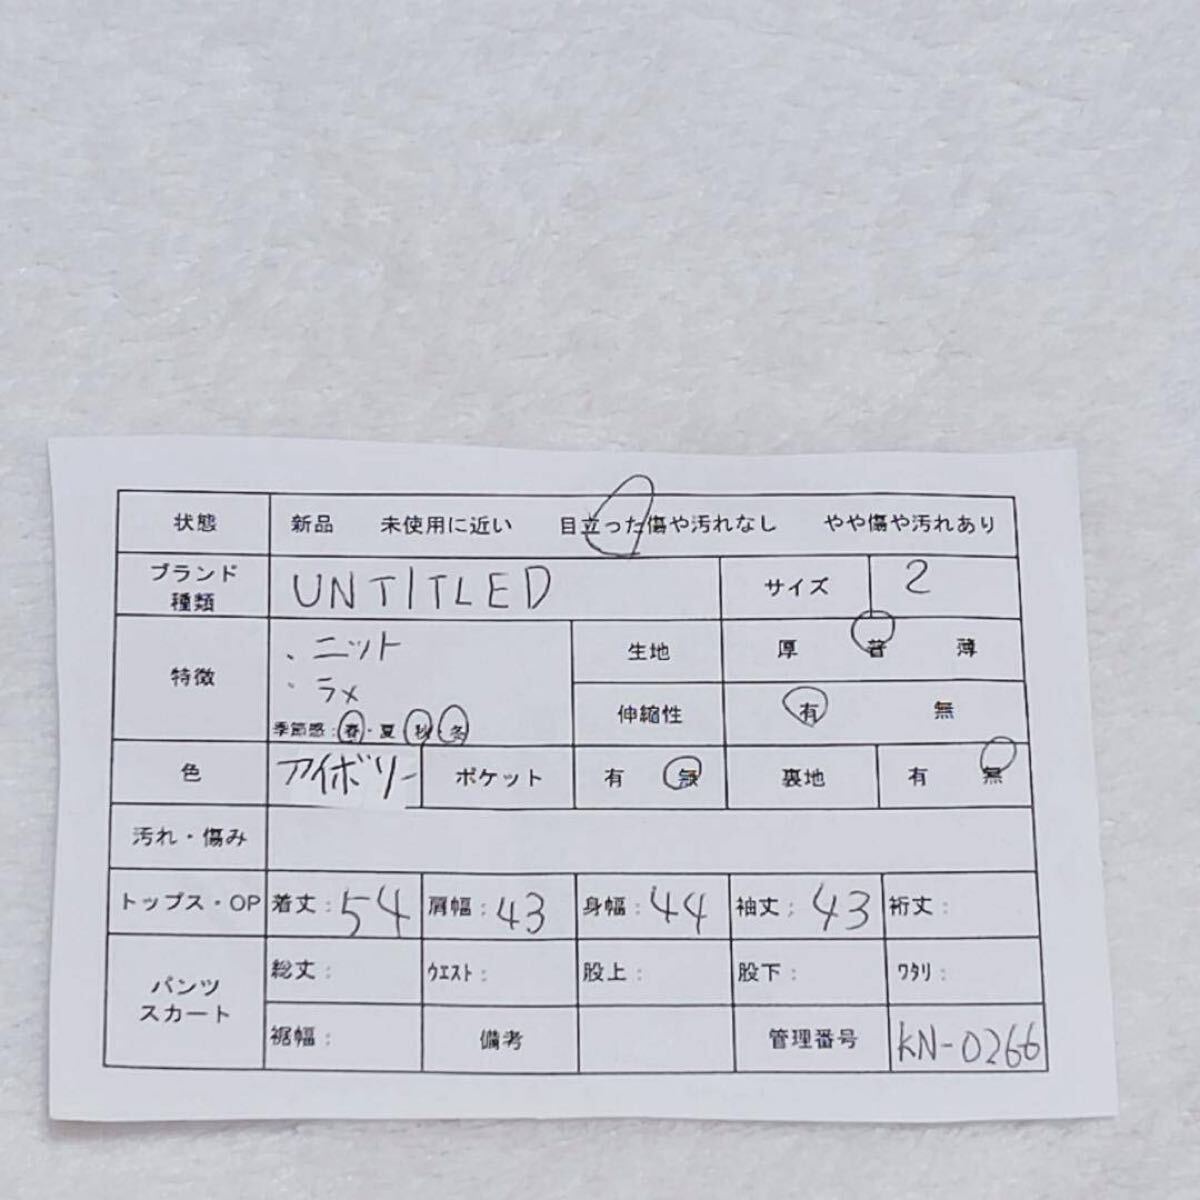 状態 新品 未使用に近い 目立った傷や汚れなし やや傷や汚れあり
ブランド 種類 UNTITLED サイズ 2
特徴 ・ニット 生地 厚 普 薄
・ラメ 伸縮性 有 無
季節感:春・夏 秋 冬
色 アイボリー ポケット 有 無 裏地 有 無
汚れ・傷み
トップス・OP 着丈:54 肩幅:43 身幅:44 袖丈:43 裄丈:
パンツ スカート 総丈: ウエスト: 股上: 股下: ワタリ:
裾幅: 備考 管理番号 KN-0266